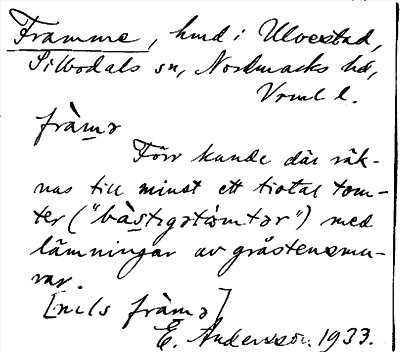 Framme, hmd i Ulvestad,
Silbodals sn, Nordmarks hd,
Vrml l.
fràmə
Förr kunde där räk-
nas till minst ett tiotal tom-
ter ("bàstigotòmtər") med
lämningar av gråstensmu-
rar.
[nils fràmə]
E. Andersson 1933.